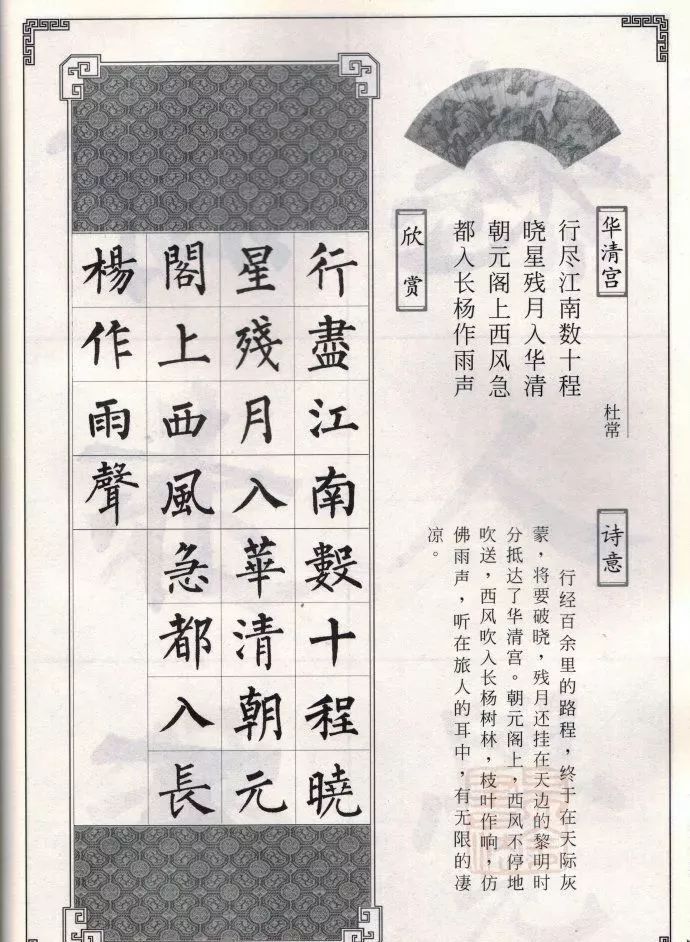 华清宫
杜常
行尽江南数十程
晓星残月入华清
朝元阁上西风急
都入长杨作雨声
诗意
行经百余里的路程，终于在天际灰
蒙，将要破晓，残月还挂在天边的黎明时
分抵达了华清宫。朝元阁上，西风不停地
吹送，西风吹入长杨树林，枝叶作响，仿
佛雨声，听在旅人的耳中，有无限的凄
凉。
欣赏
行盡江南數十程曉
星殘月入華清朝元
閣上西風急都入長
楊作雨聲